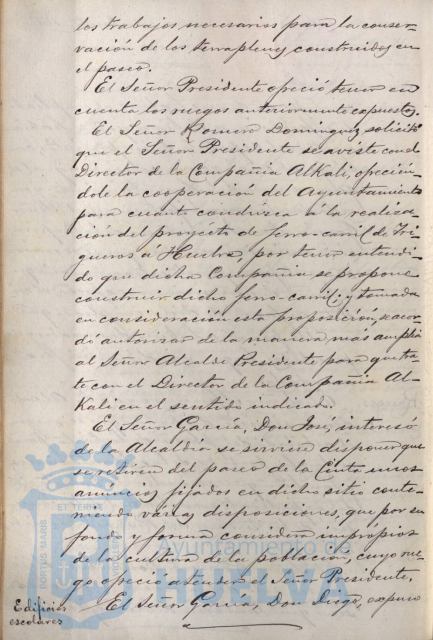 los trabajos necesarios para la conser-
vación de los terraplenes construidos en
el paseo.
El Señor Presidente ofreció tener en
cuenta los ruegos anteriormente expuestos.
El Señor Romero Dominguez solicitó
que el Señor Presidente se aviste con el
Director de la Compañia Alkali, ofrecién-
dole la cooperación del Ayuntamiento
para cuanto conduzca á la realiza-
ción del proyecto de ferro-carril de Tri-
gueros á Huelva, por tener entendi-
do que dicha Compañia se propone
construir dicho ferro-carril; y tomada
en consideración esta proposición, se acor-
dó autorizar de la manera más amplia
al Señor Alcalde Presidente para que tra-
te con el Director de la Compañia Al-
Kali en el sentido indicado.
El Señor Garcia, Don José, interesó
de la Alcaldia se sirviese disponer que
se retiren del paseo de la Cinta unos
anuncios fijados en dicho sitio conte-
niendo varias disposiciones, que por su
fondo y forma considera impropios
de la cultura de la población, cuyo rue-
go ofreció atender el Señor Presidente.
Edificios
escolares
El Señor Garcia, Don Diego, expuso
PORTUS MARIS
ET TERRAE
Ayuntamiento de
HUELVA